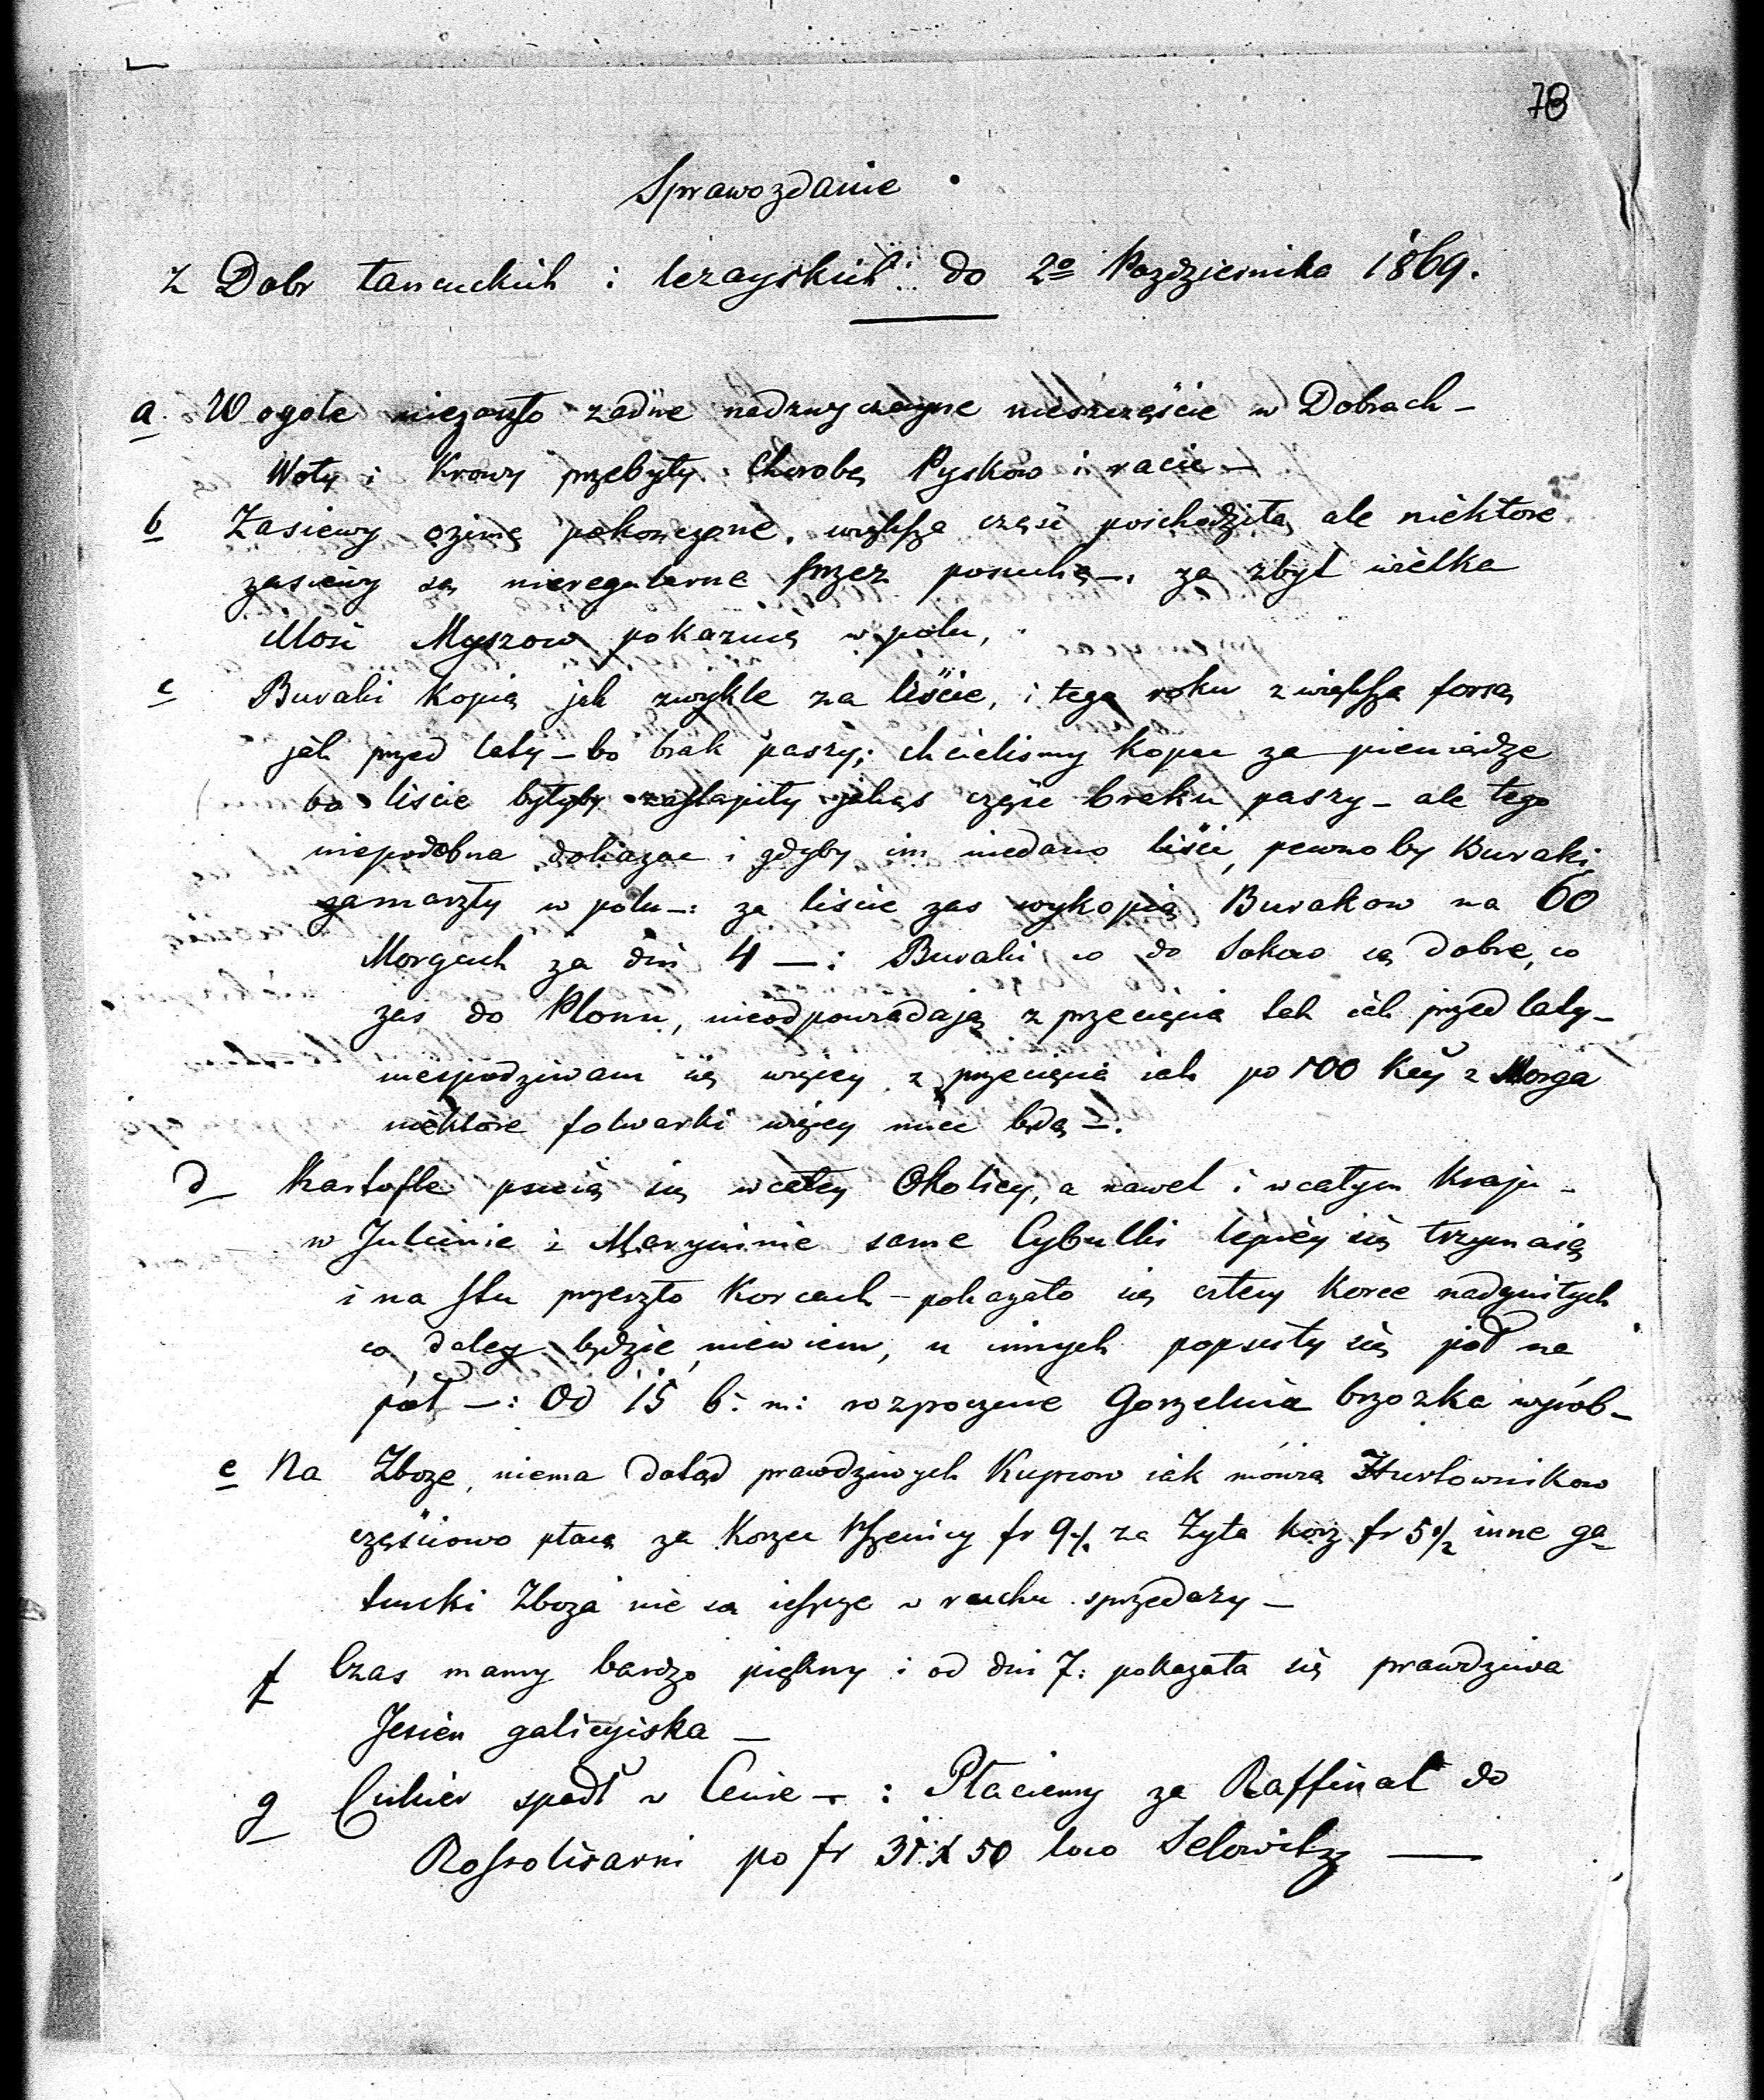 78
Sprawozdanie
z Dobr Łancuckich i leżayskich do 2º Pazdziernika 1869.
a. W ogole niezaszło żadne nadzwyczayne nieszczęście w Dobrach –
Woły i Krowy przebyły Chorobę Pyskow i racic –
b Zasiewy ozime pokończone, większa część poschodziła, ale niektóre
zasiewy są nieregularne przez posuchę –, za zbyt wielka
Ilość Myszow pokazuią w polu,
c Buraki Kopią jak zwykle za liście, i tego roku z większą forsą
jak przed laty – bo brak paszy; chcielismy kopac za pieniądze
bo liscie byłyby zastąpiły jakąs część braku paszy – ale tego
niepodobna dokazac i gdyby im niedano liści, pewnoby Buraki
zamarzły w polu –: za liscie zas wykopią Burakow na 60
Morgach za dni 4 –: Buraki co do Sokow są dobre, co
zas do Plonu, nieodpowiadają z przecięcia tak jak przed laty –
niespodziwam się więcey z przecięcia jak po 100 z Morga
niektóre folwarki więcey miec będą –.
d Kartofle psuią się w całey Okolicy, a nawet i w całym Kraju –
w Julinie i Maryninie same Cybulki lepiey się trzymaią
i na stu przeszło Korcach – pokazało się cztery Korce nadgniłych
co daley będzie niewiem, u innych popsuły się pół na
pół –: Od 15 b: m: rozpocznie Gorzelnia brzozka wyrób –
e Na Zboże, niema dotąd prawdziwych Kupcow iak mówią Hurtownikow
częściowo płacą za Korzec Pszenicy fr 9 za Zyta korz fr 5½ inne ga–
tunki Zboża nie są ieszcze w ruchu sprzedaży –
f Czas mamy bardzo piękny i od dni 7: pokazała się prawdziwa
Jesien galicyiska –
g Cukier spadł w Cenie – : Płaciemy za Raffinat do
Rossolisarni po fr 31 x 50 loco Selowitz —